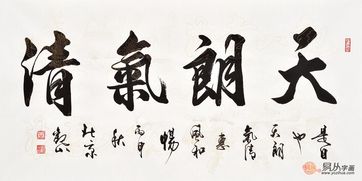 天朗氣清
是日
也
天朗
氣清
惠
風和
暢
丙申
秋
北京
觀山
易从字画